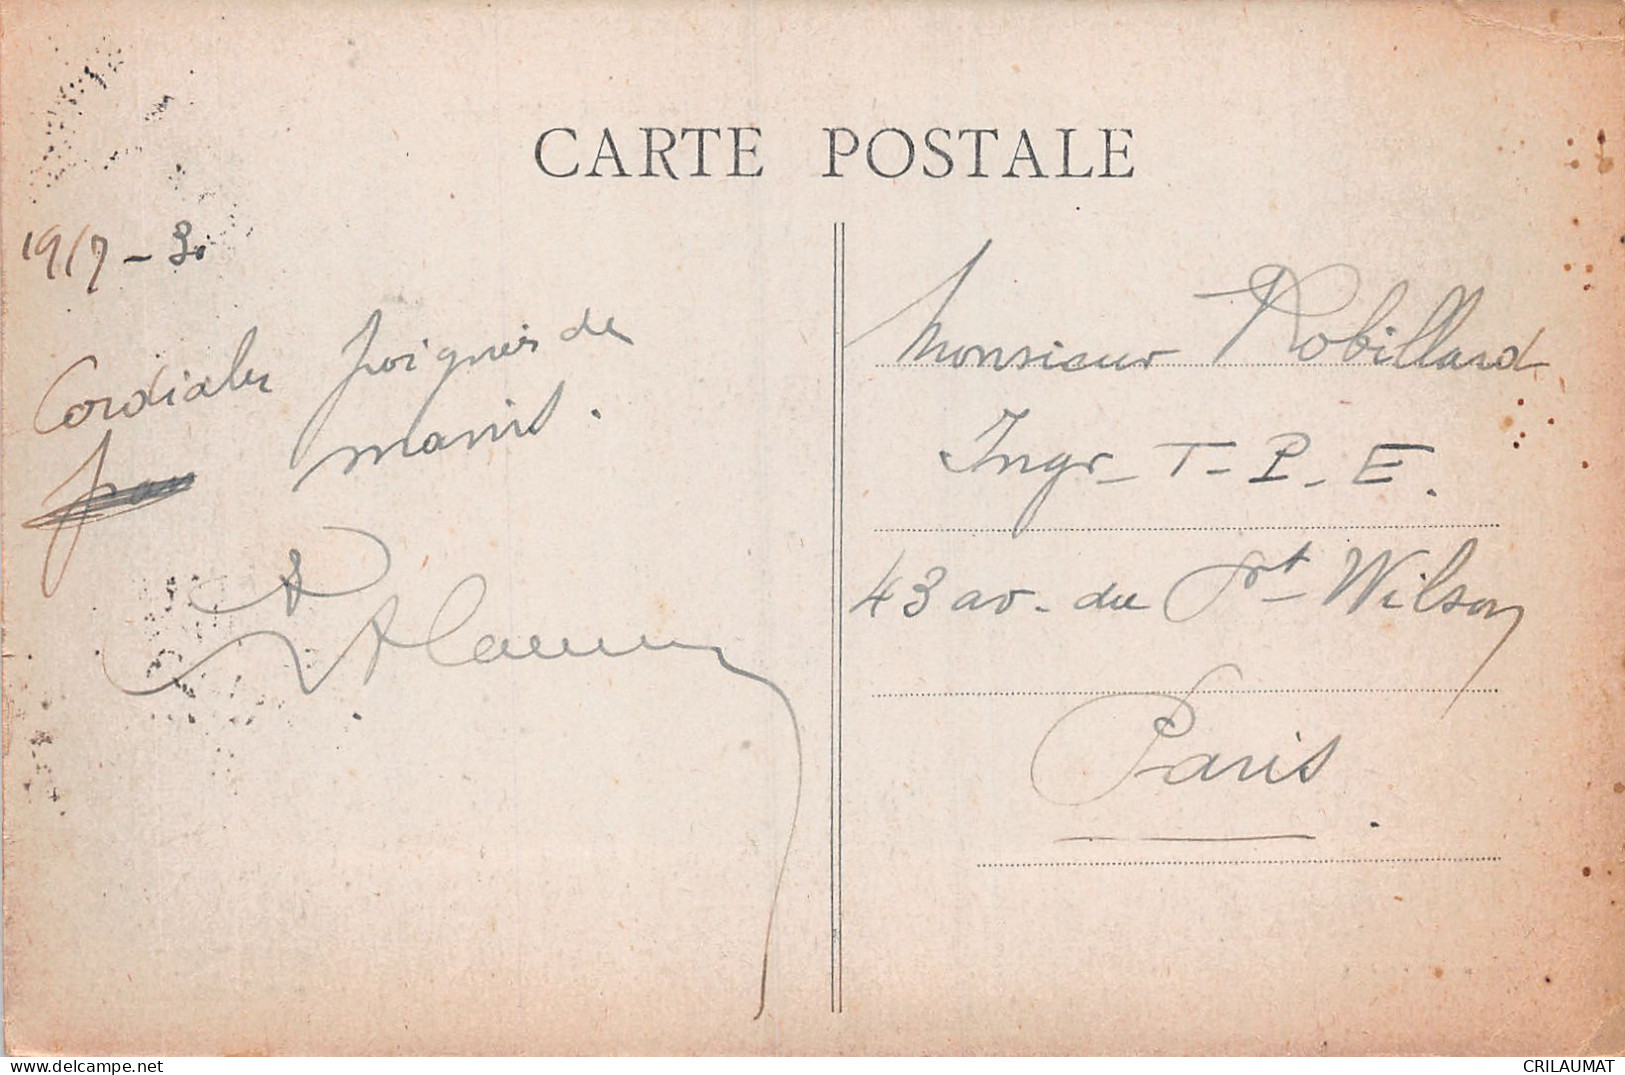 CARTE POSTALE
19/7-30
Cordiales poignées de
mains.
Monsieur Robillard
Ingr - T - P - E.
43 av. du Pt Wilson
Paris
www.delcampe.net
CRILAUMAT